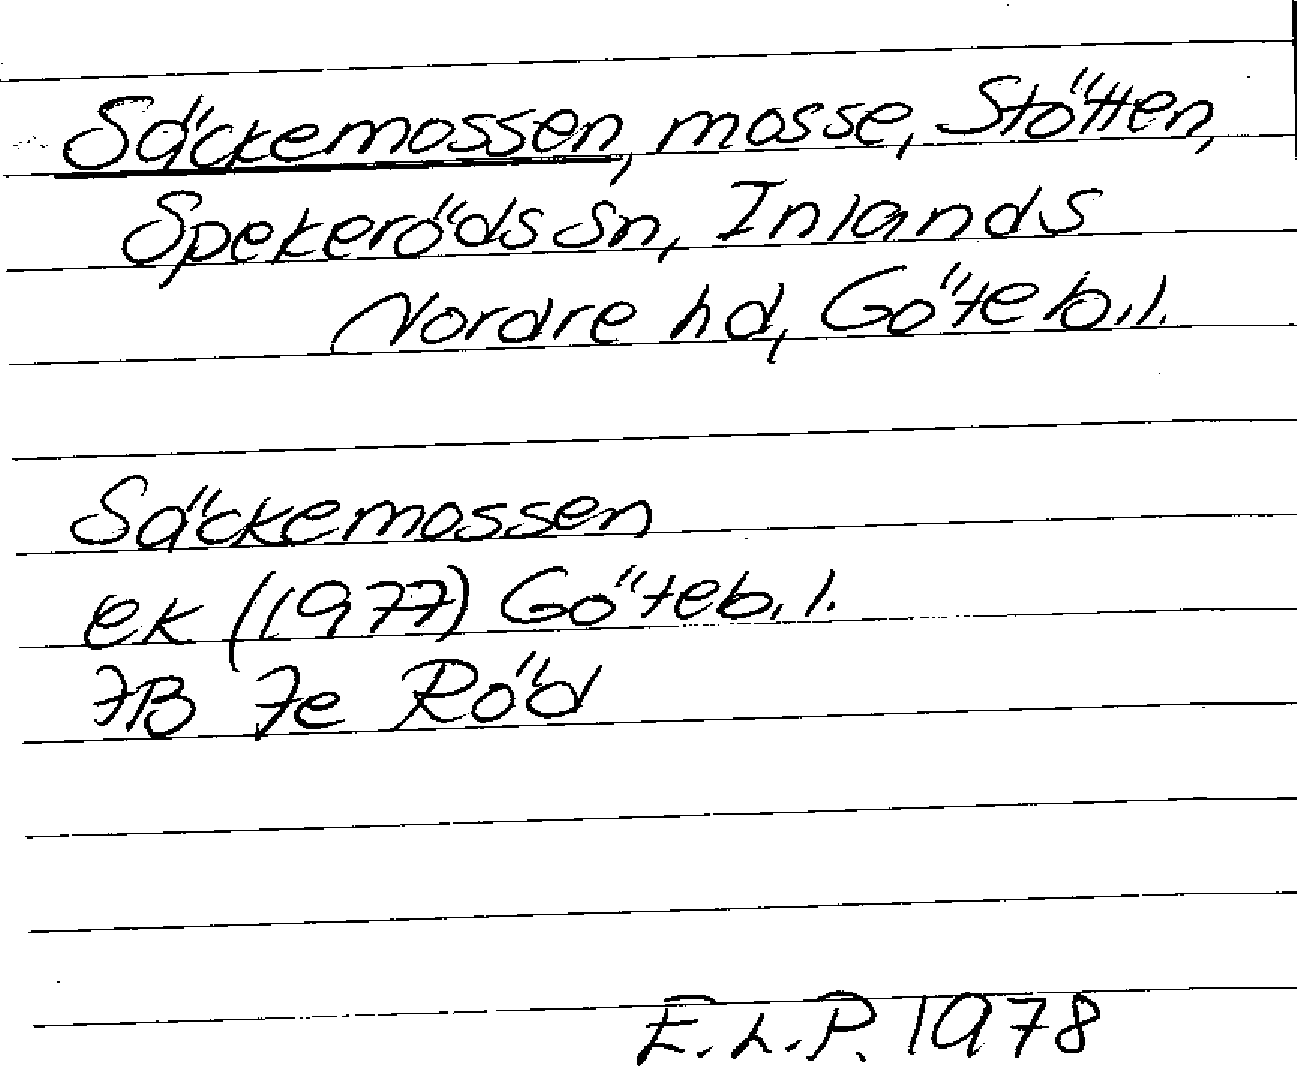 Säckemossen, mosse, Stötten,
Spekeröds sn, Inlands
Nordre hd, Göteb.l.
Säckemossen
ek (1977) Göteb.l.
7B 7e Röd
E.L.P. 1978